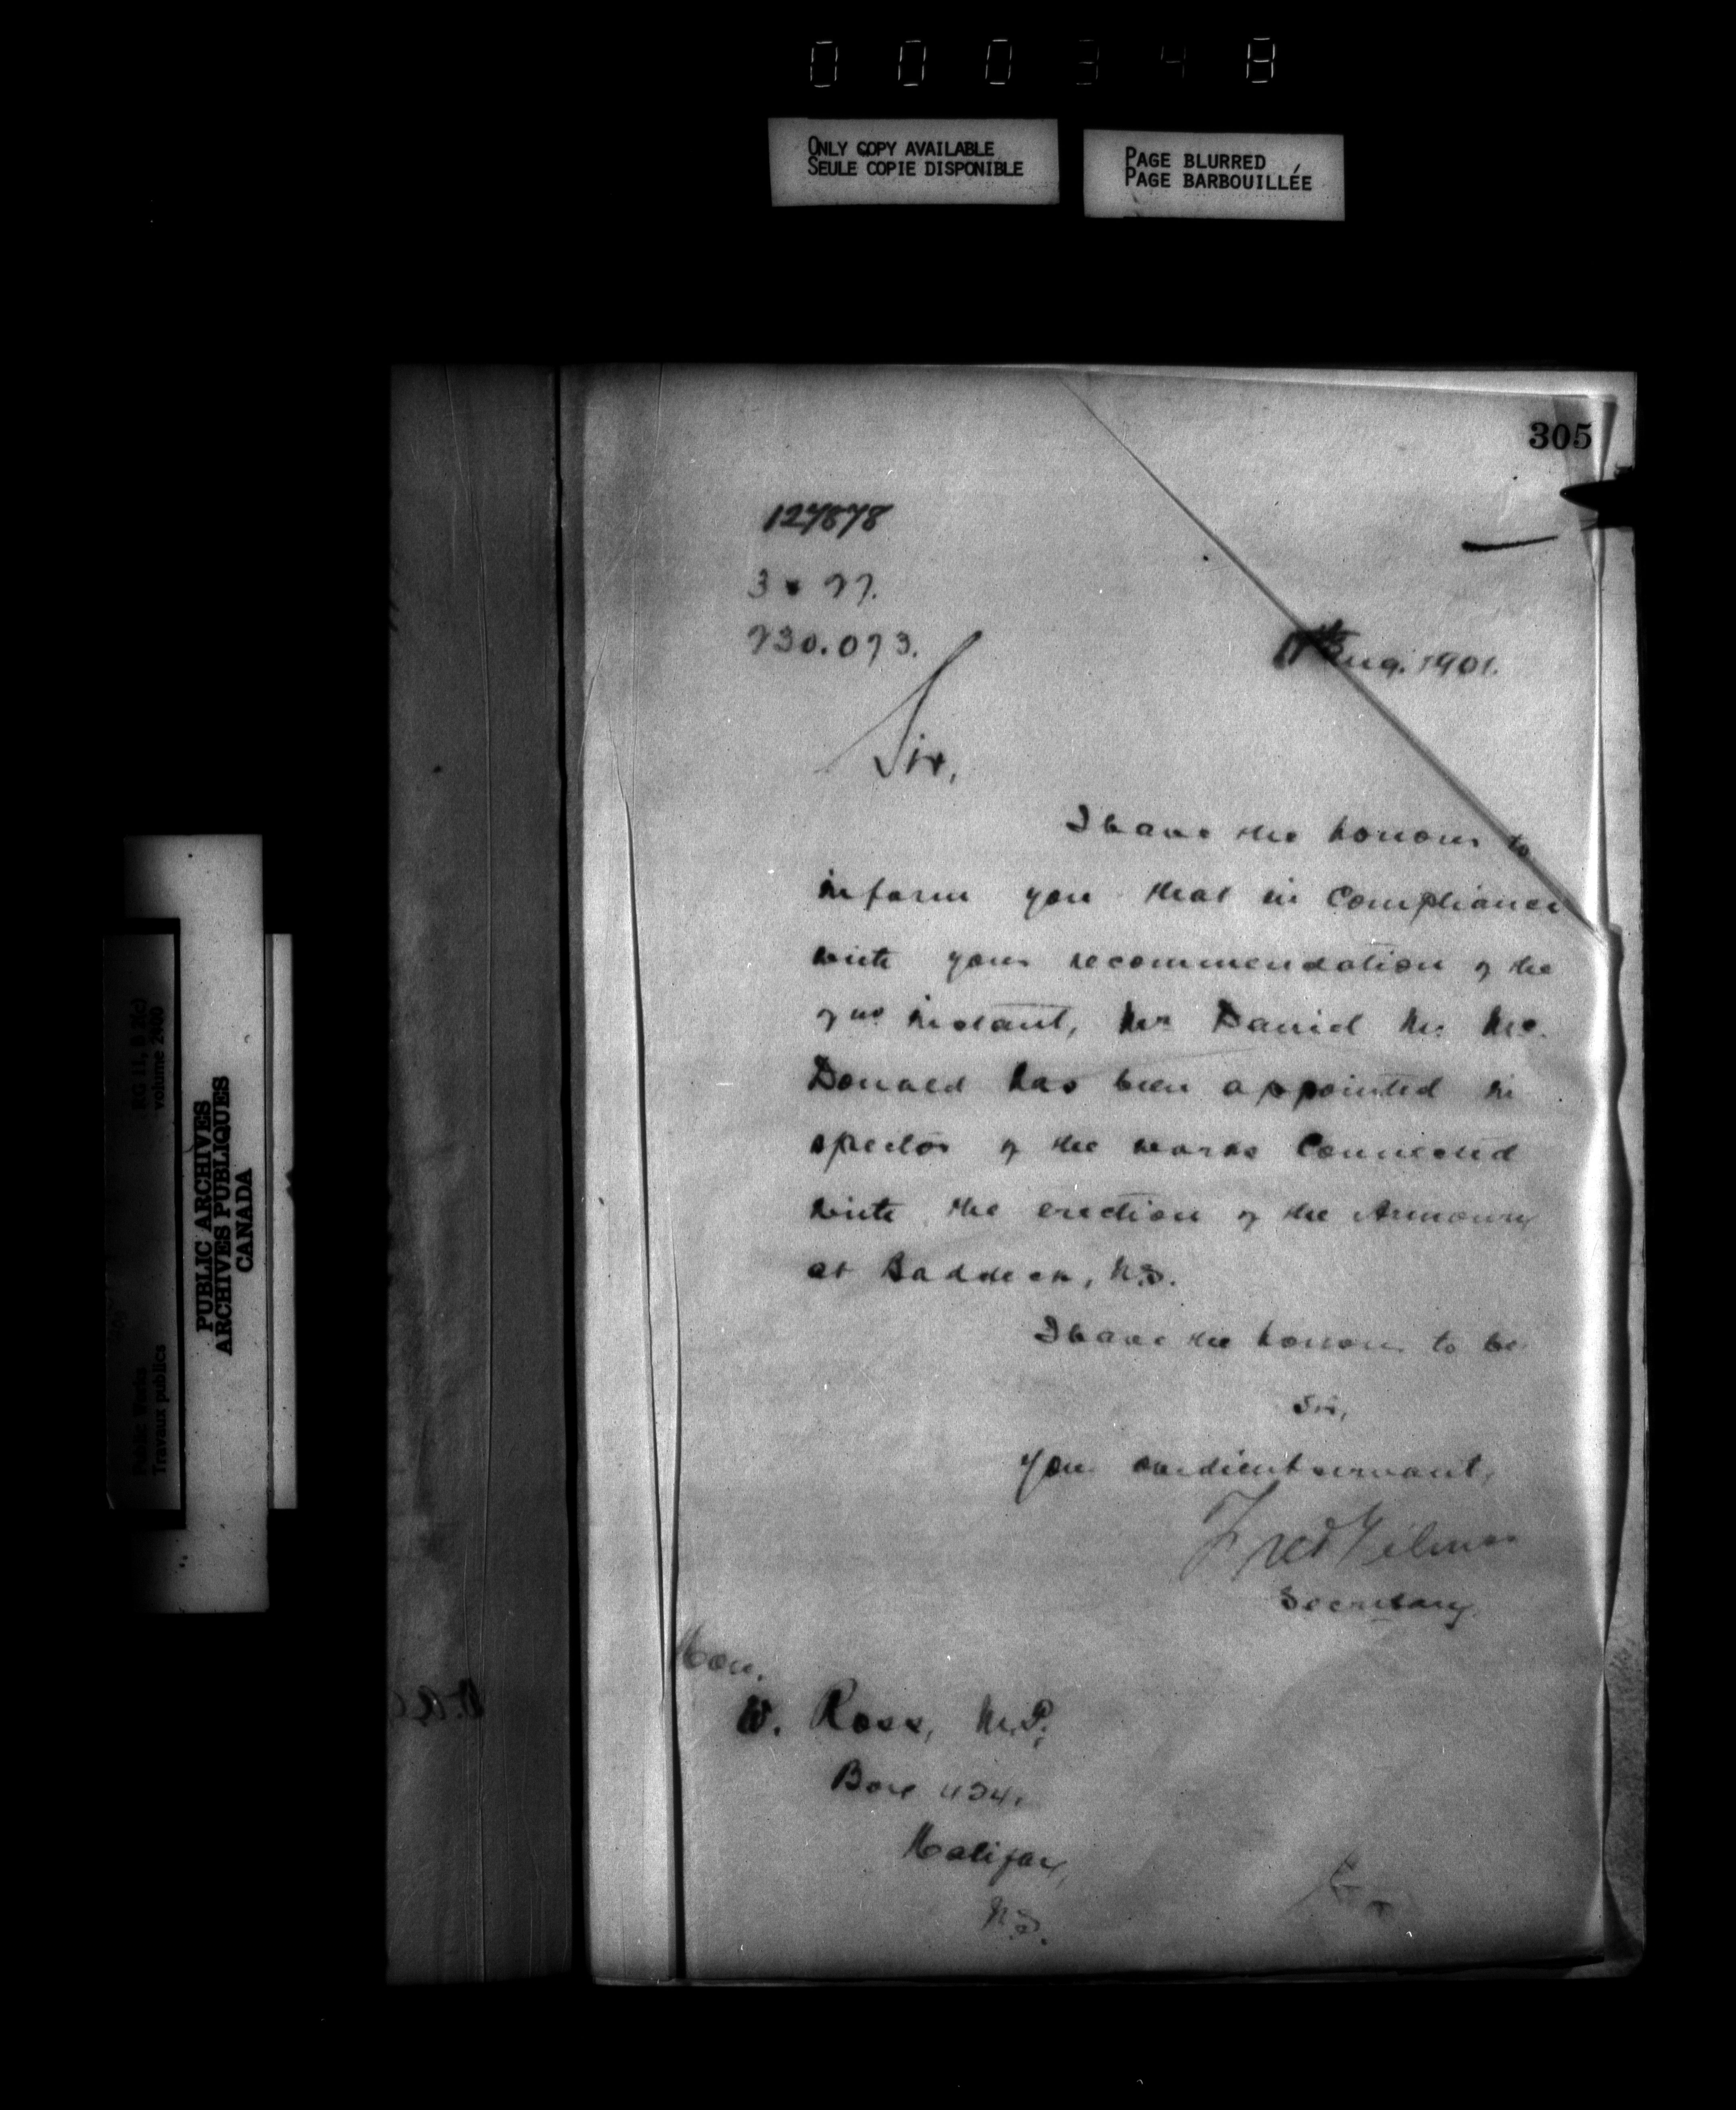 000348
ONLY COPY AVAILABLE
SEULE COPIE DISPONIBLE
PAGE BLURRED
PAGE BARBOUILLÉE
305
127878
230.073.
Aug. 1901.
Sir,
I have the honour to
inform you that in Compliance
with your recommendation of the
instant, Mr Daniel Mc.
Donald has been appointed in
spector of the works Connected
with the erection of the Armoury
at Baddeck, N.S.
I have the honour to be
Sir,
Your obedient servant,
Fred Gelinas
Secretary
Hon.
W. Ross, M.P.,
Box 424,
Halifax,
N.S.
PUBLIC ARCHIVES
ARCHIVES PUBLIQUES
CANADA
RG 11, B 2(c)
volume
Public Works
Travaux publics